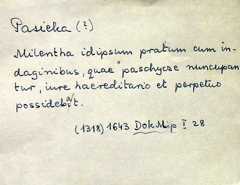 Pasieka (?)
Milentha idipsum pratum cum in-
daginibus, quae "paschycze nuncupan
tur, iure haereditario et perpetuo
possidebit.
(1318) 1643 DokMip I 28